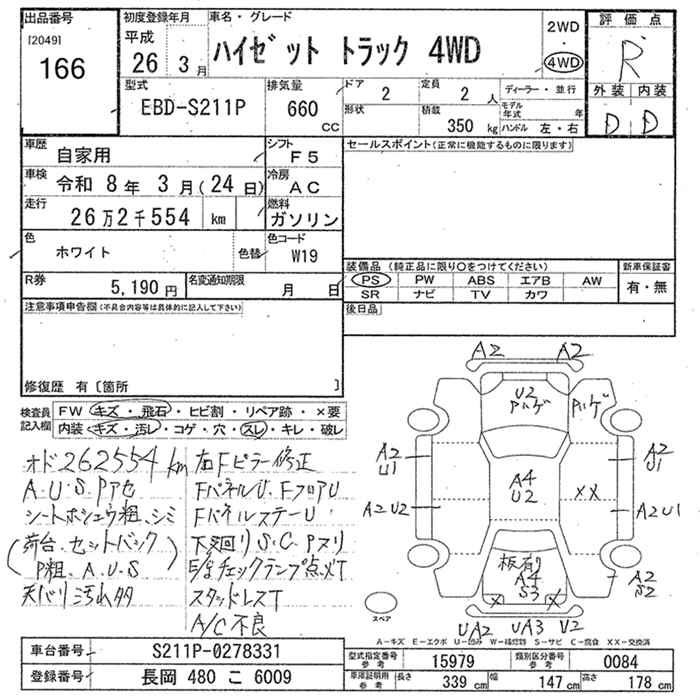 出品番号
[2049]
166
初度登録年月
平成
26 3月
車名・グレード
ハイゼット トラック 4WD
2WD
・
4WD
評価点
R
外装 内装
D D
型式
EBD-S211P
排気量
660 CC
ドア
2
定員
2 人
形状
積載
350 kg
ディーラー・並行
モデル年式 年
ハンドル 左・右
車歴
自家用
シフト
F5
車検
令和 8年 3月(24日)
冷房
AC
走行
26万2千554 km
燃料
ガソリン
色
ホワイト
色替
色コード
W19
R券
5,190円
名変通知期限
月 日
セールスポイント(正常に機能するものに限ります)
装備品 (純正品に限り○をつけてください)
PS PW ABS エアB AW
SR ナビ TV カワ
新車保証書
有・無
後日品
注意事項申告欄(不具合内容等は具体的に記入して下さい)
修復歴 有〔箇所 〕
検査員記入欄
FW キズ・飛石・ヒビ割・リペア跡・×要
内装・キズ・汚レ・コゲ・穴・スレ・キレ・破レ
オド262554km
A.U.S.Pアセ
シートホシュウ粗、シミ
(荷台、セットバック
P粗、A.U.S)
天バリ汚れ多
右Fピラー修正
FパネルU、FフロアU
FパネルステーU
下廻りS.C.Pスリ
E/gチェックランプ点灯
スタッドレスT
A/C不良
A2 A2
U2
Pハゲ
Pハゲ
A2
U1
A2
U1
A4
U2
××
A2U2
A2U1
板有り
A4
S3
× ×
A2
S2
UA2 UA3 U2
スペア
A-キズ E-エクボ U-凹み W-補修跡 S-サビ C-腐食 XX-交換済
車台番号
S211P-0278331
登録番号
長岡 480 こ 6009
型式指定番号
参考
15979
類別区分番号
参考
0084
車庫証明用
参考
長さ
339 cm
幅
147 cm
高さ
178 cm